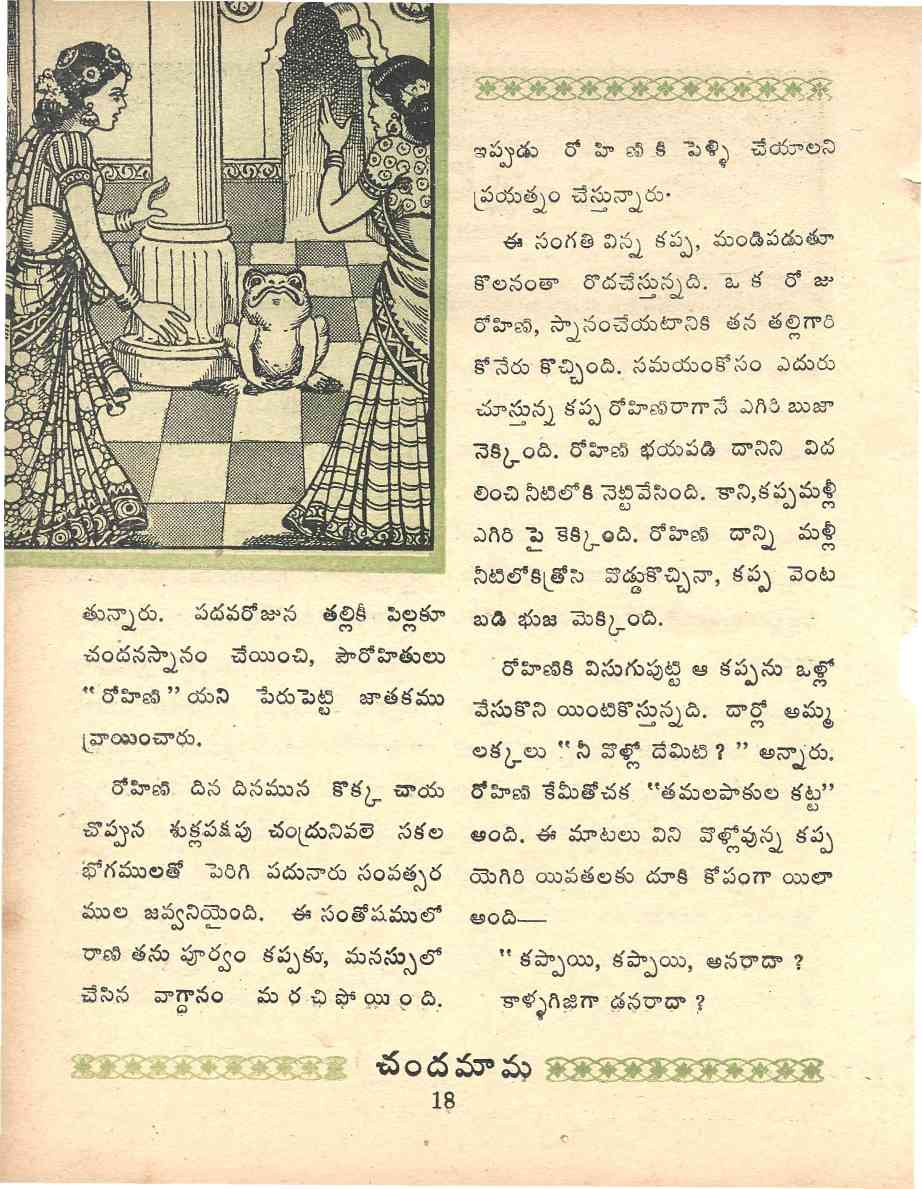 తున్నారు. పదవరోజున తల్లికీ పిల్లకూ
చందనస్నానం చేయించి, పౌరోహితులు
“రోహిణి” యని పేరుపెట్టి జాతకము
వ్రాయించారు.
రోహిణి దిన దినమున కొక్క చాయ
చొప్పున శుక్లపక్షపు చంద్రునివలె సకల
భోగములతో పెరిగి పదునారు సంవత్సర
ముల జవ్వనియైంది. ఈ సంతోషములో
రాణి తను పూర్వం కప్పకు, మనస్సులో
చేసిన వాగ్దానం మరచిపోయింది.
ఇప్పుడు రోహిణికి పెళ్ళి చేయాలని
ప్రయత్నం చేస్తున్నారు.
ఈ సంగతి విన్న కప్ప, మండిపడుతూ
కొలనంతా రొదచేస్తున్నది. ఒక రోజు
రోహిణి, స్నానంచేయటానికి తన తల్లిగారి
కోనేరు కొచ్చింది. సమయంకోసం ఎదురు
చూస్తున్న కప్ప రోహిణిరాగానే ఎగిరి బుజా
నెక్కింది. రోహిణి భయపడి దానిని విద
లించి నీటిలోకి నెట్టివేసింది. కాని,కప్పమళ్లీ
ఎగిరి పై కెక్కింది. రోహిణి దాన్ని మళ్లీ
నీటిలోకిత్రోసి వొడ్డుకొచ్చినా, కప్ప వెంట
బడి భుజ మెక్కింది.
రోహిణికి విసుగుపుట్టి ఆ కప్పను ఒళ్లో
వేసుకొని యింటికొస్తున్నది. దార్లో అమ్మ
లక్కలు “నీ వొళ్లో దేమిటి?” అన్నారు.
రోహిణి కేమీతోచక “తమలపాకుల కట్ట”
అంది. ఈ మాటలు విని వొళ్లోవున్న కప్ప
యెగిరి యివతలకు దూకి కోపంగా యిలా
అంది—
“కప్పాయి, కప్పాయి, అనరాదా?
కాళ్ళగిజిగా డనరాదా?
చందమామ
18